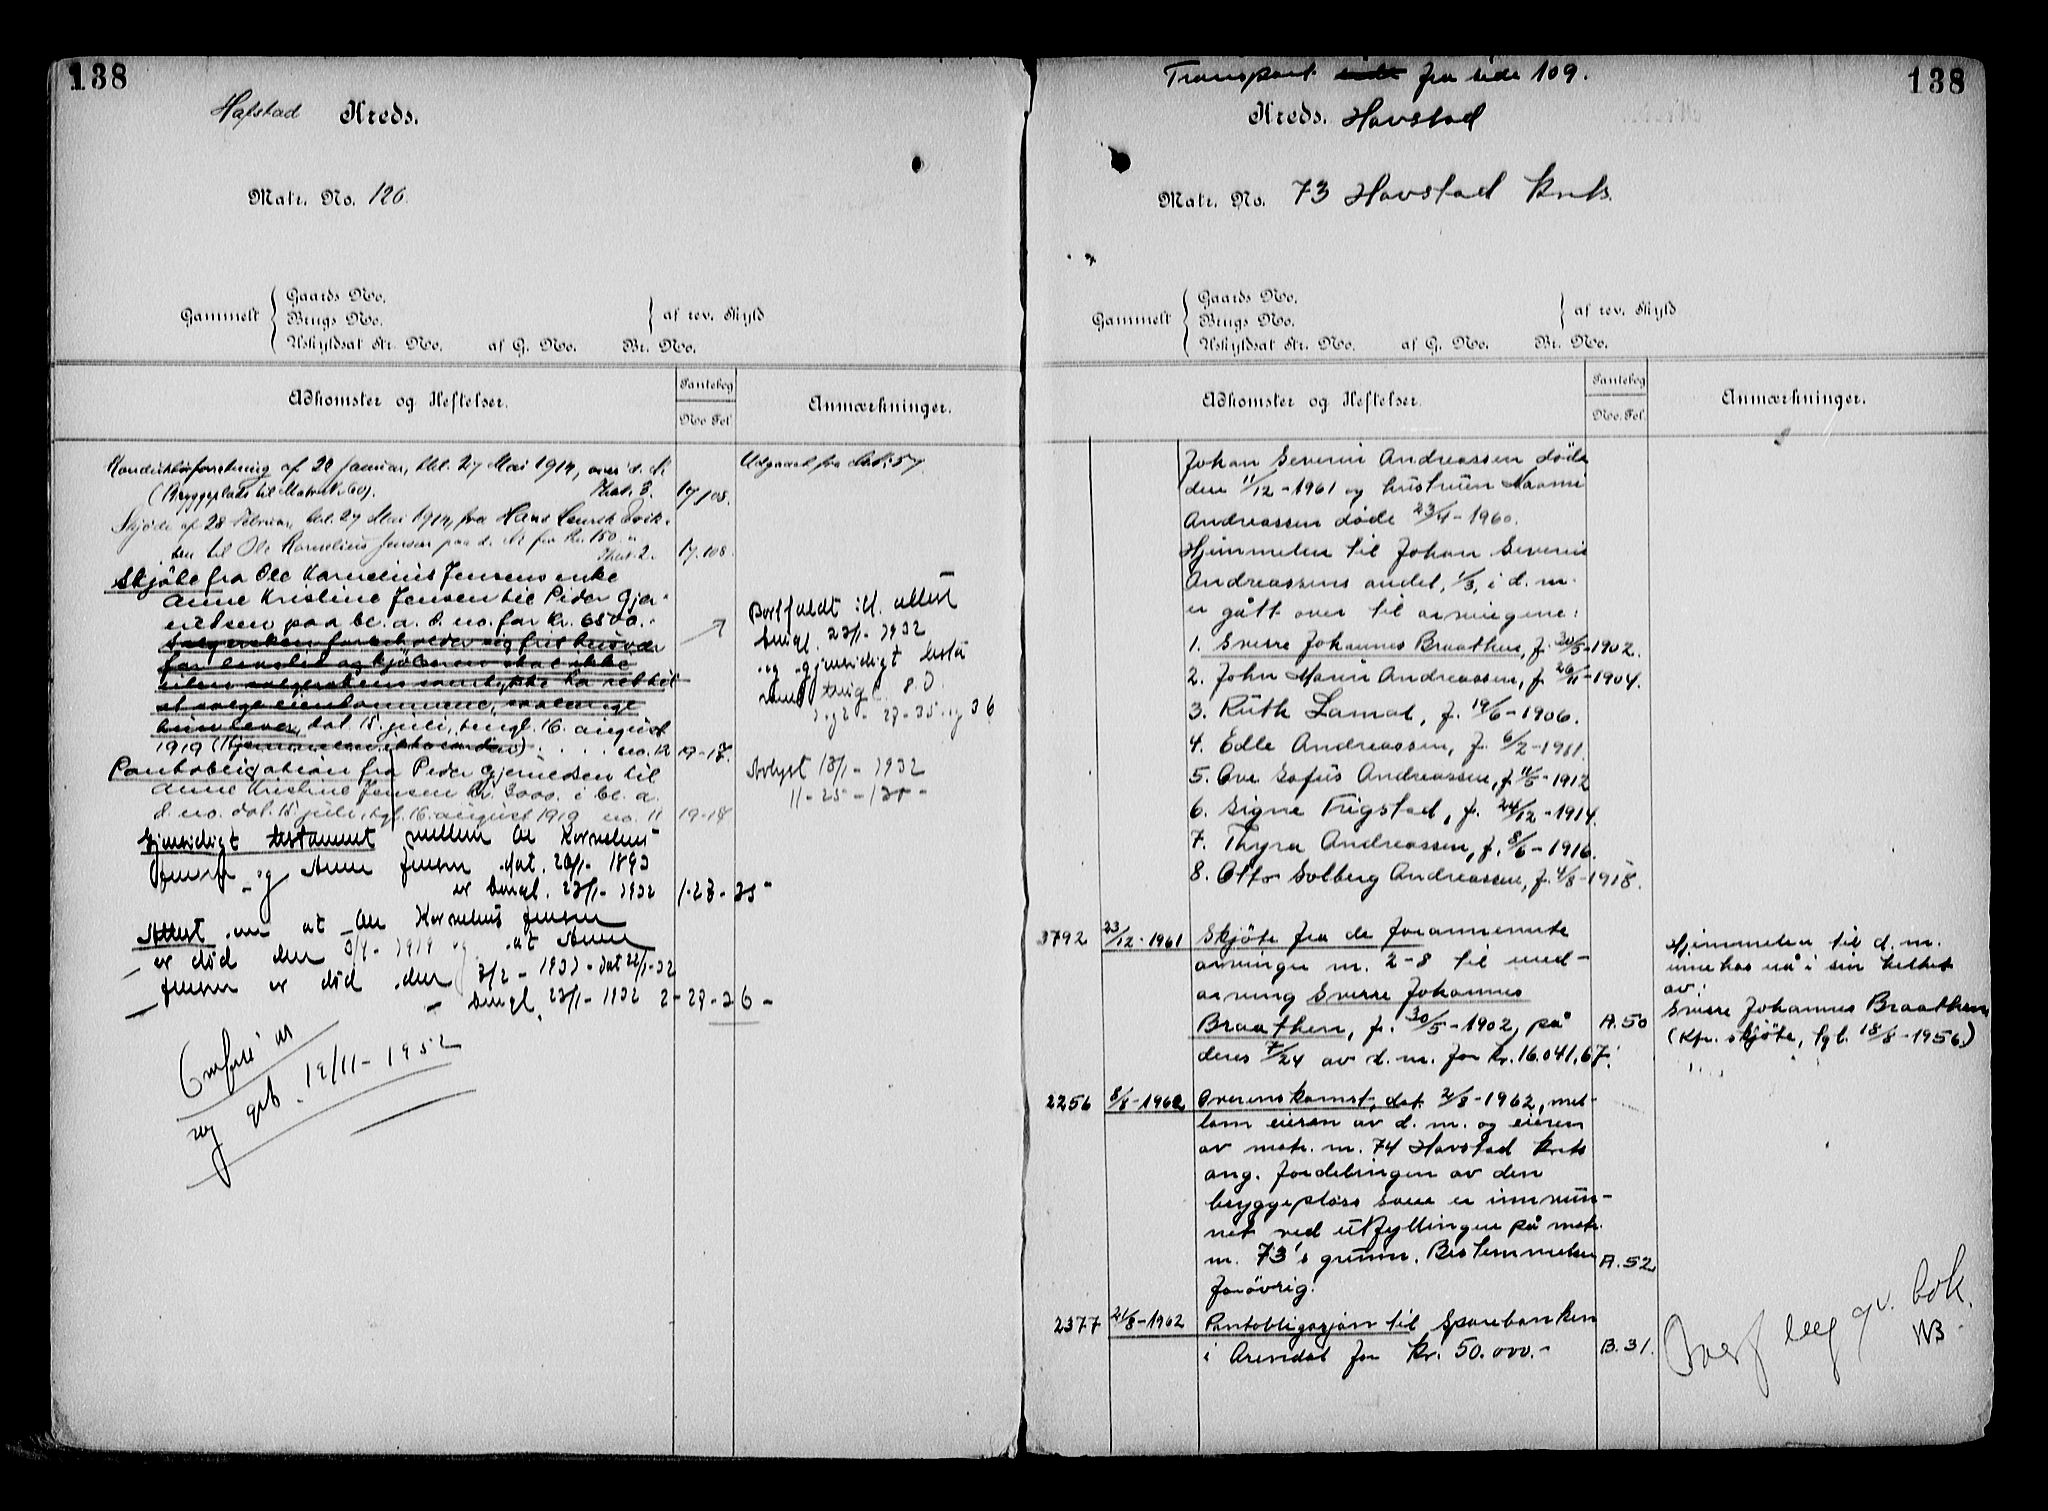 138
Hafstad Kreds.
Matr. No. 126.
Gammelt
Gaards No.
Brugs No.
Uskyldsat Str. No. af G. No. Br. No.
af rev. Skyld
Adkomster og Heftelser.
Pantebog
No. Fol.
Anmærkninger.
af 28 Januar, tbl. 27 Mai 1914, over d. No.
(Byggeplads til Matr. No. 60). 17/108.
Udgaaet fra
Skjøde af 28 Februar, tbl. 27 Mai 1914, fra Hans
til Ole Kornelius Jensen paa d. No for Kr. 150.-
17.108.
Skjöte fra Ole Kornelius Jensens enke
Anne Kristine Jensen til Peder Gjer-
uldsen paa bl. a. d. no. for kr. 6500.-
dat. 15 juli, tingl. 16. august
1919 no. 12 19-17.
Bortfaldt ifl. attest
tingl. 23/1-1932
og gjensidigt testa
ment tingl. s. D.
27-35 og 36
Pantobligation fra Peder Gjeruldsen til
Anne Kristine Jensen kr. 3000. i bl. a.
d. no. dat. 15 juli, tgl. 16. august 1919 no. 11 19-18
Avlyst 13/1-1932
11-25-130-
Gjensidigt testament mellem Ole Kornelius
Jensen og Anne Jensen dat. 20/1-1893
er tingl. 23/1-1932 1-23-35
Attest om at Ole Kornelius Jensen
er död den og at Anne
Jensen er död den
tingl. 23/1-1932 2-28-36-
Overført
19/11-1952
138
Transport fra side 109.
Kreds. Havstad
Matr. No. 73 Havstad krets.
Gammelt
Gaards No.
Brugs No.
Uskyldsat Str. No. af G. No. Br. No.
af rev. Skyld
Adkomster og Heftelser.
Pantebog
No. Fol.
Anmærkninger.
Johan Severin Andreassen döde
den 11/12-1961 og hustruen Naomi
Andreassen döde 23/4-1960.
Hjemmelen til Johan Severin
Andreassens andel, 1/3, i d. m.
er gått over til arvingene:
1. Sverre Johannes Braathen, f. 30/5-1902.
2. John Marin Andreassen, f. 26/11-1904.
3. Ruth Lamat, f. 19/6-1906.
4. Edle Andreassen, f. 6/2-1911.
5. Ove Sofus Andreassen, f. 11/5-1912
6. Signe Trigstad, f. 24/12-1914.
7. Thyra Andreassen, f. 8/6-1916.
8. Otto Solberg Andreassen, f. 4/8-1918.
3792 23/12-1961 Skjöte fra de forannevnte
arvinger nr. 2-8 til med-
arving Sverre Johannes
Braathen, f. 30/5-1902, på A.50
deres 7/24 av d. m. for kr. 16.041,67.
Hjemmelen til d. m.
innehas nå i sin helhet
av:
Sverre Johannes Braathen
(kfr. skjöte, tgl. 18/8-1956.)
2256 8/8-1962 Overenskomst, dat. 2/8-1962, mel-
lom eieren av d. m. og eieren
av matr. nr. 74 Havstad krets
ang. fordelingen av den
byggeplass som er innvun-
net ved utfyllingen på matr.
nr. 73's grunn. Bestemmelser A.52
forövrig.
2377 21/8-1962 Pantobligasjon til Sparebanken
i Arendal for kr. 50.000.- B.31.
bok.
NB